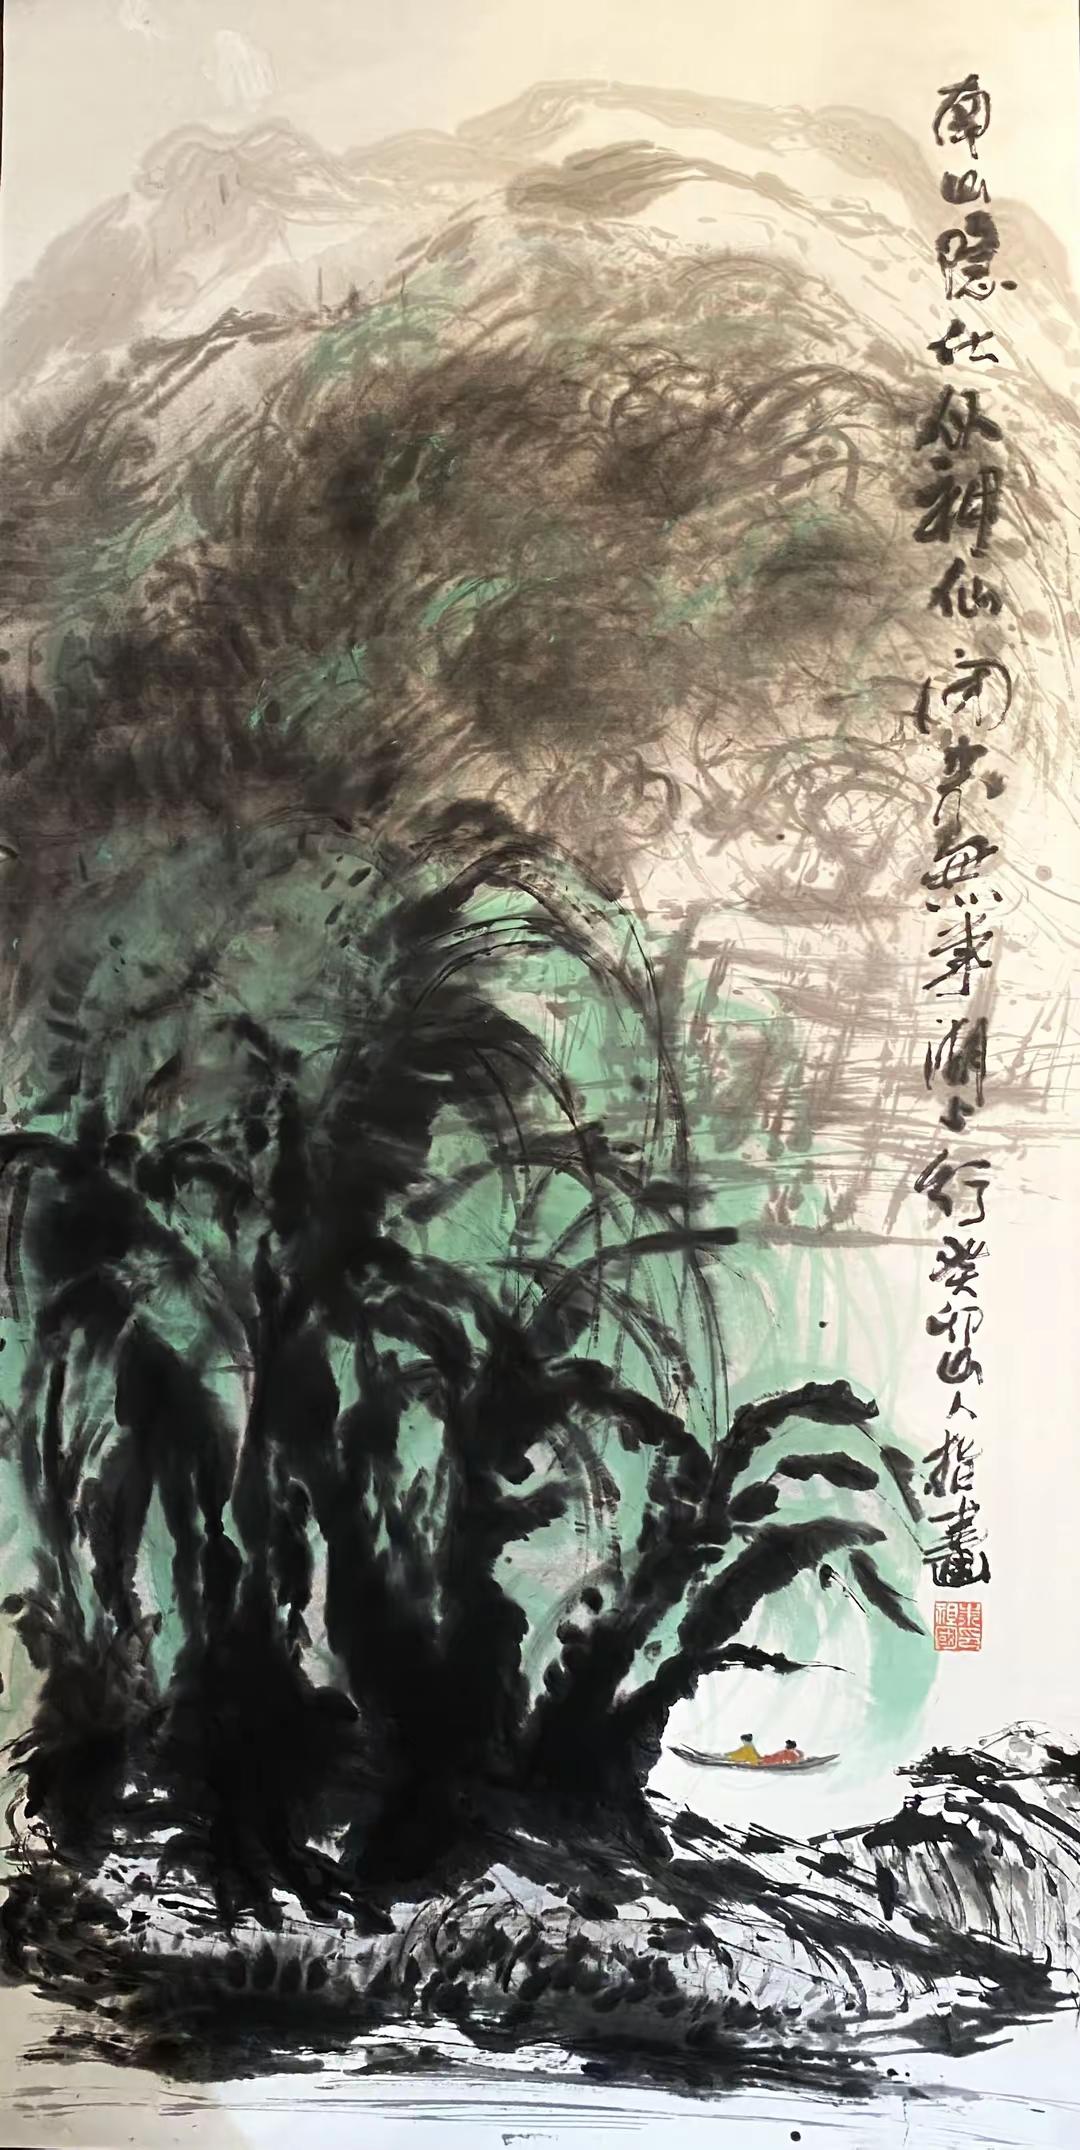 南山隐仕似神仙闲来無事湖上行癸卯山人指畫